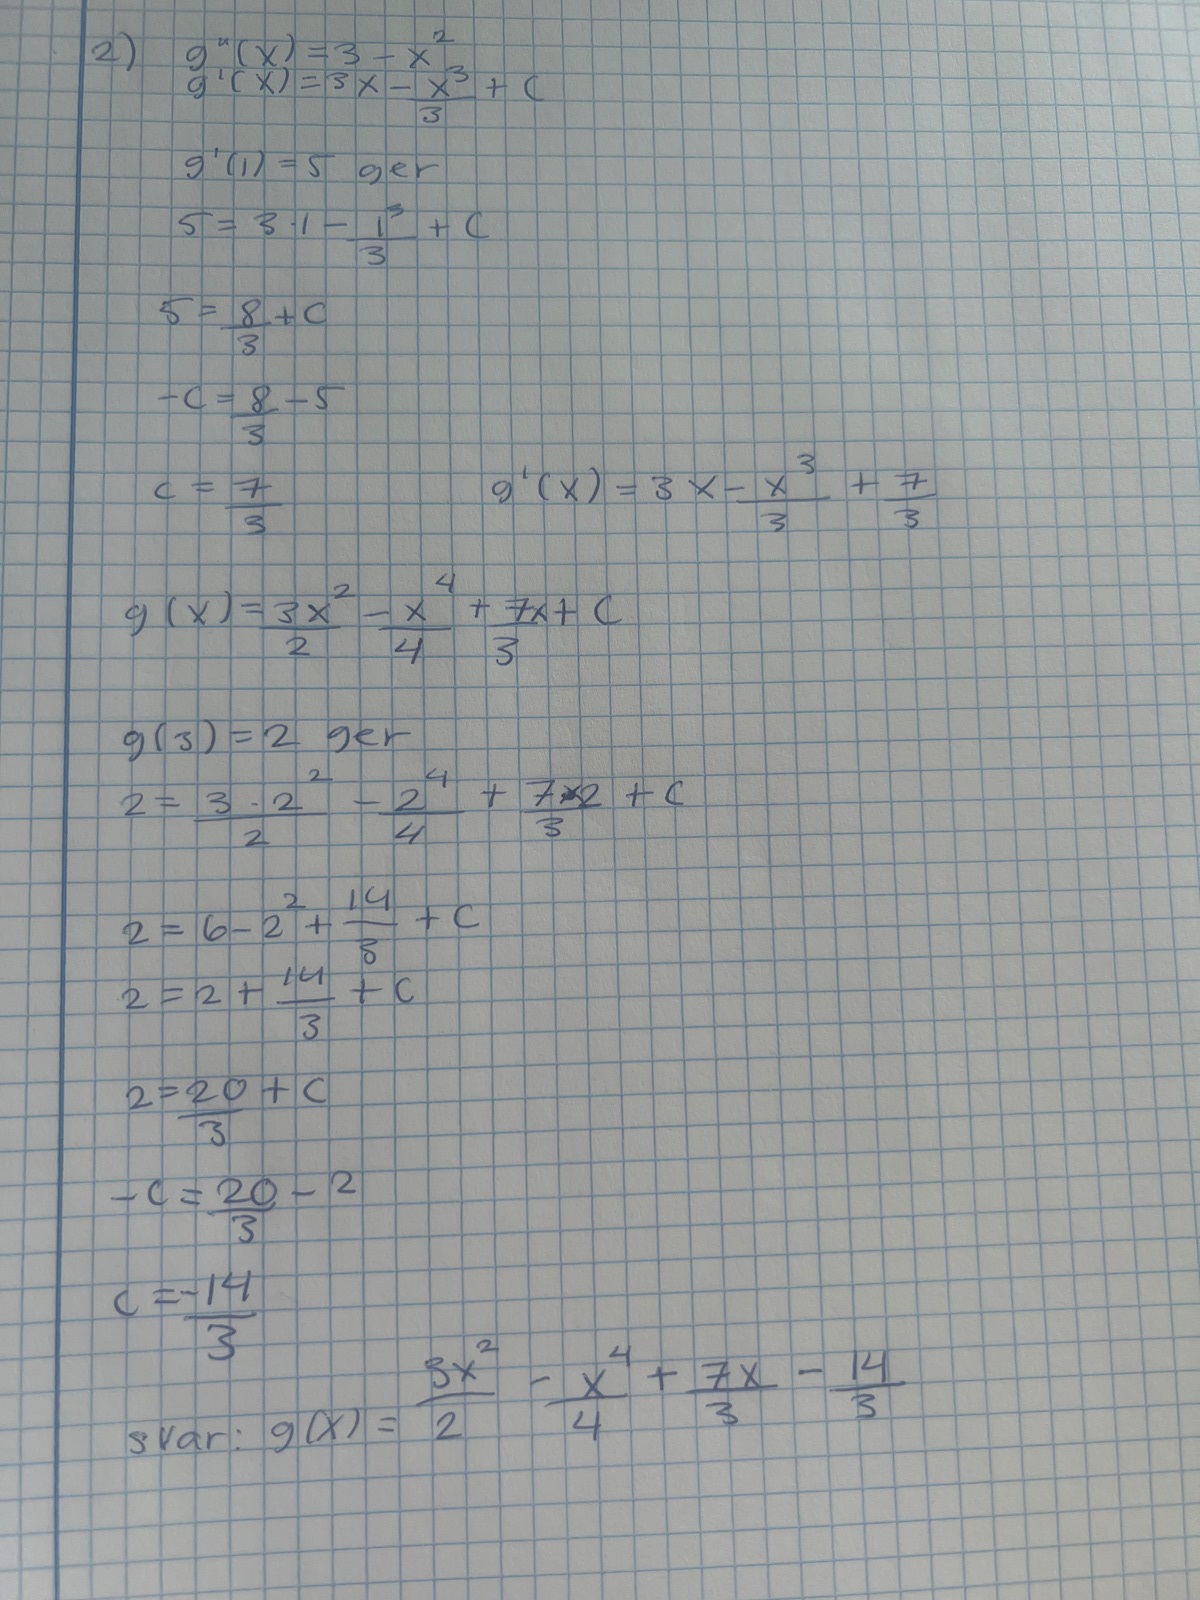 2) g"(x) = 3 - x²
g'(x) = 3x - x³/3 + C
g'(1) = 5 ger
5 = 3·1 - 1³/3 + C
5 = 8/3 + C
-C = 8/3 - 5
C = 7/3 g'(x) = 3x - x³/3 + 7/3
g(x) = 3x²/2 - x⁴/4 + 7x/3 + C
g(3) = 2 ger
2 = 3·2²/2 - 2⁴/4 + 7·2/3 + C
2 = 6 - 2² + 14/3 + C
2 = 2 + 14/3 + C
2 = 20/3 + C
-C = 20/3 - 2
C = -14/3
svar: g(x) = 3x²/2 - x⁴/4 + 7x/3 - 14/3